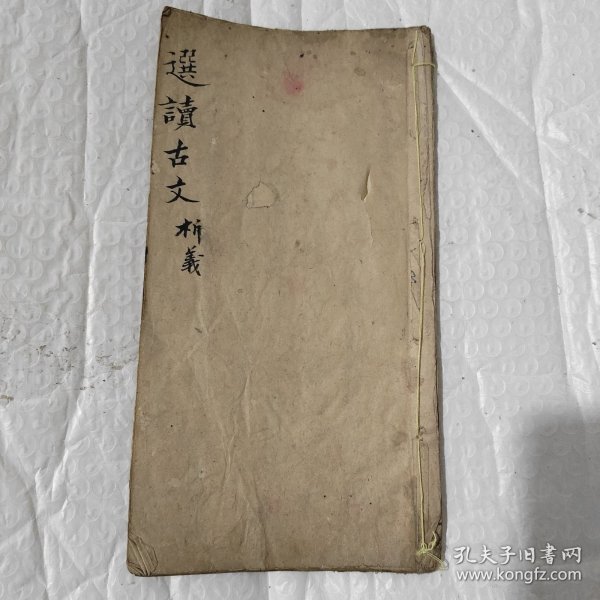 選讀古文
析義
孔夫子旧書网
www.kongfz.com